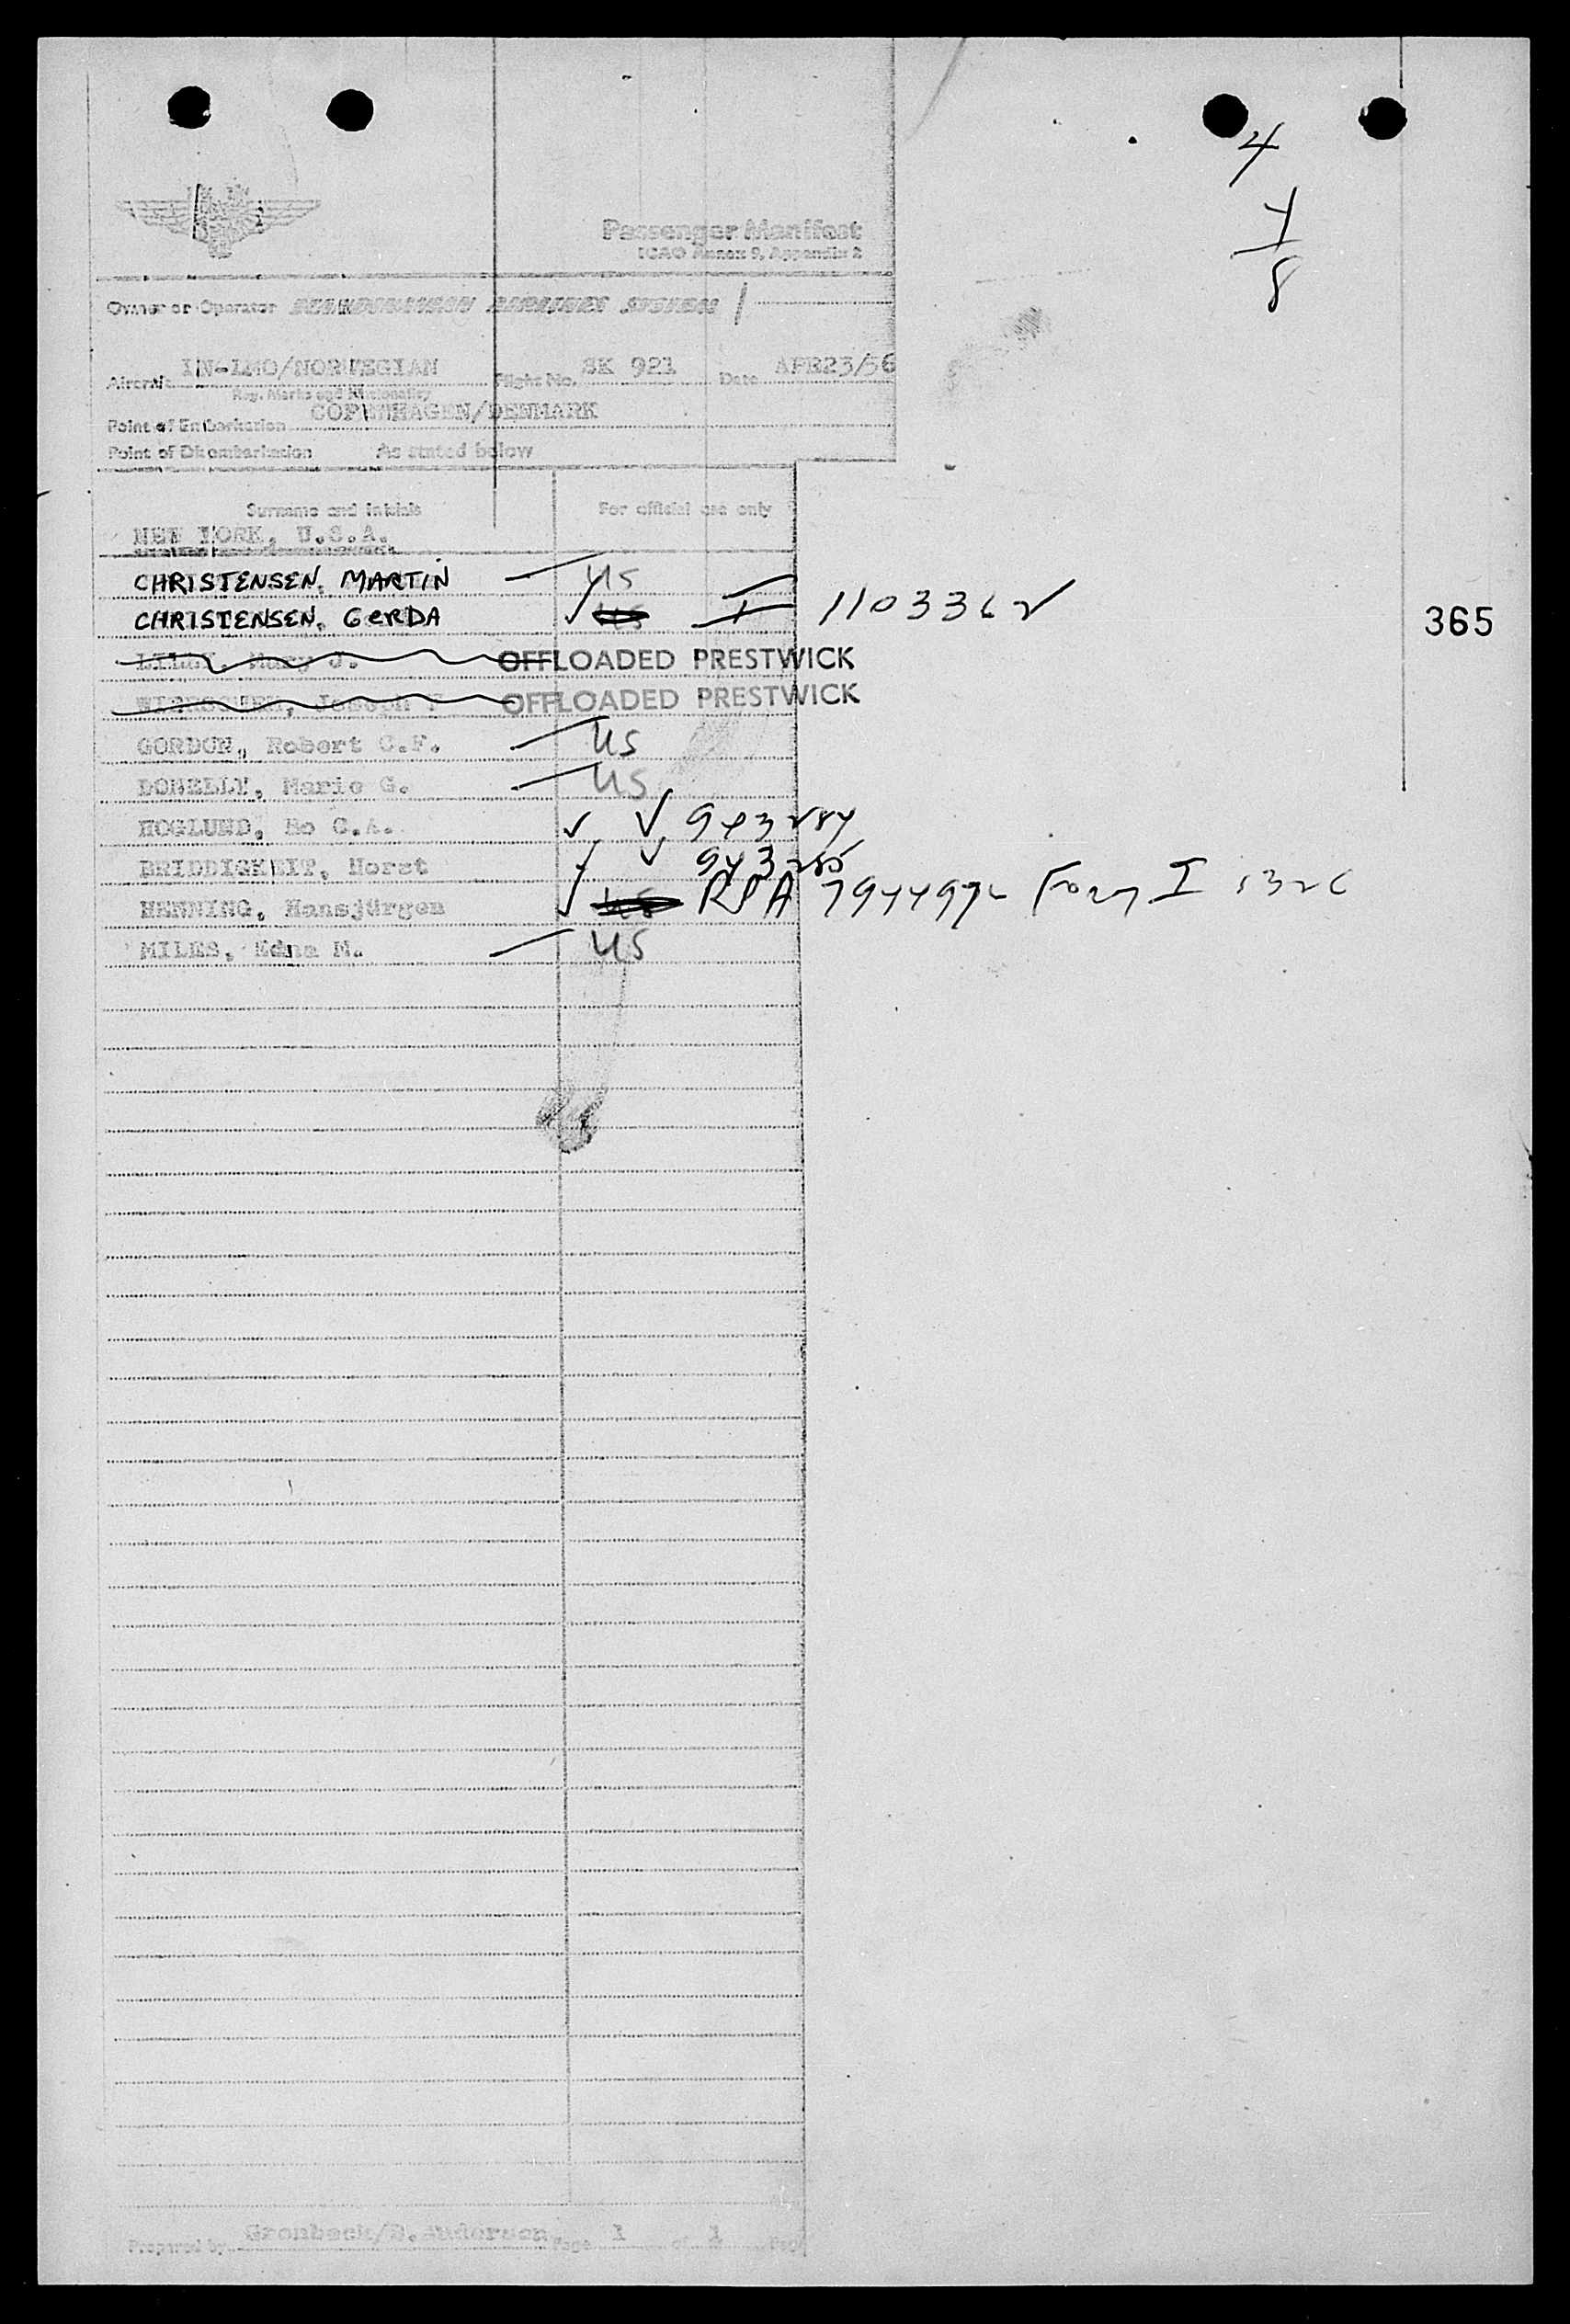 4
Y
8
Passenger Manifest
ICAO Annex 9, Appendix 2
Owner or Operator SCANDINAVIAN AIRLINES SYSTEM
Aircraft LN-LMO/NORWEGIAN Flight No. SK 921 Date APR23/56
Reg. Marks and Nationality
Point of Embarkation COPENHAGEN/DENMARK
Point of Disembarkation As stated below
Surname and initials For official use only
NEW YORK, U.S.A.
CHRISTENSEN, MARTIN US
CHRISTENSEN, GERDA US I 1103362
365
Mary J. OFFLOADED PRESTWICK
Joseph OFFLOADED PRESTWICK
GORDON, Robert C.F. US
DONELLY, Marie G. US
HOGLUND, Bo C.A. 943284
BRIDDIGKEIT, Horst 943285
HENNING, Hansjürgen US Form I
MILES, Edna M. US
Prepared by Gronbech/B. Andersen Page 1 of 1 Page